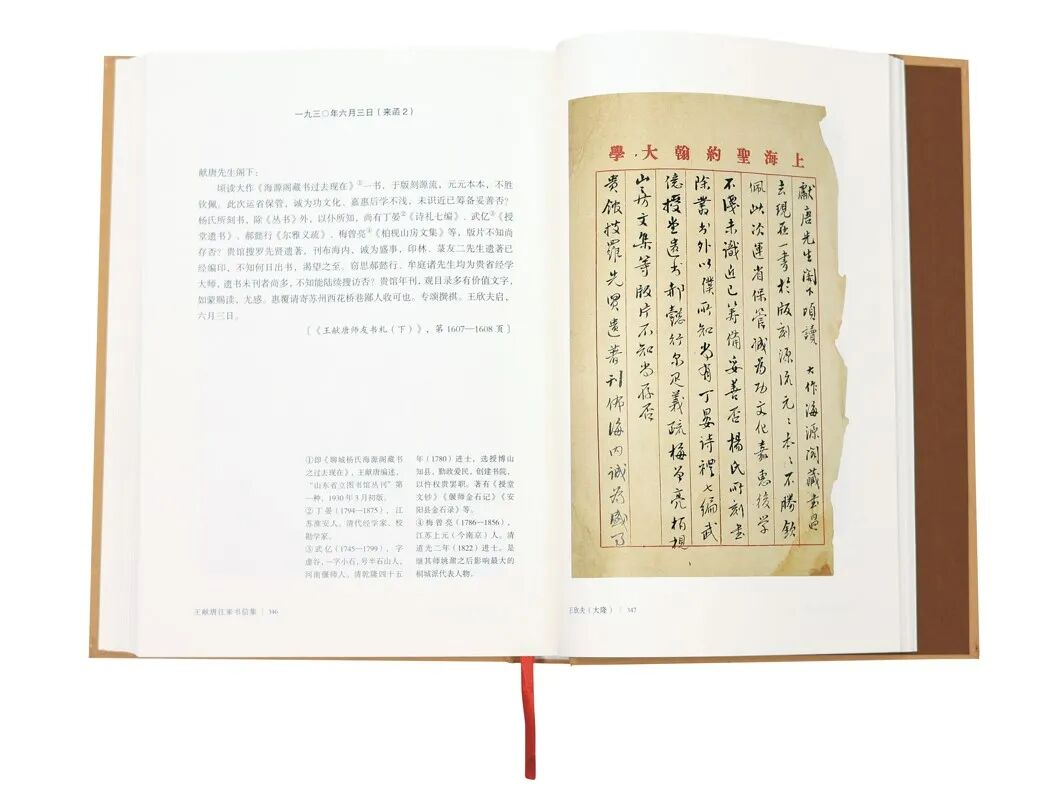 一九三〇年六月三日（来函2）
献唐先生阁下：
顷读大作《海源阁藏书过去现在》①一书，于版刻源流，元元本本，不胜
钦佩。此次运省保管，诚为功文化，嘉惠后学不浅，未识近已筹备妥善否？
杨氏所刻书，除《丛书》外，以仆所知，尚有丁晏②《诗礼七编》、武亿③《授
堂遗书》、郝懿行《尔雅义疏》、梅曾亮④《柏枧山房文集》等，版片不知尚
存否？贵馆搜罗先贤遗著，刊布海内，诚为盛事，印林、菉友二先生遗著已
经编印，不知何日出书，渴望之至。窃思郝懿行、牟庭诸先生均为贵省经学
大师，遗书未刊者尚多，不知能陆续搜访否？贵馆年刊，观目录多有价值文字，
如蒙赐读，尤感。惠覆请寄苏州西花桥巷鄙人收可也。专颂撰祺。王欣夫启，
六月三日。
［《王献唐师友书札（下）》，第1607—1608页］
①即《聊城杨氏海源阁藏书
之过去现在》，王献唐编述，
“山东省立图书馆丛刊”第
一种，1930年3月初版。
②丁晏（1794—1875），江
苏淮安人。清代经学家、校
勘学家。
③武亿（1745—1799），字
虚谷，一字小石，号半石山人，
河南偃师人。清乾隆四十五
年（1780）进士，选授博山
知县，勤政爱民，创建书院，
以忤权贵罢职。著有《授堂
文钞》《偃师金石记》《安
阳县金石录》等。
④梅曾亮（1786—1856），
江苏上元（今南京）人。清
道光二年（1822）进士。是
继其师姚鼐之后影响最大的
桐城派代表人物。
王献唐往来书信集 | 346
上海聖約翰大學
獻唐先生閣下頃讀 大作海源閣藏書過
去現在一書於版刻源流元〻本〻不勝欽
佩此次運省保管誠為功文化嘉惠後學
不淺未識近已籌備妥善否楊氏所刻書
除叢書外以僕所知尚有丁晏詩禮七編武
億授堂遺書郝懿行尔疋義疏梅曾亮柏枧
山房文集等版片不知尚存否
貴館搜羅先賢遺著刊佈海内誠為盛事
王欣夫（大隆） | 347